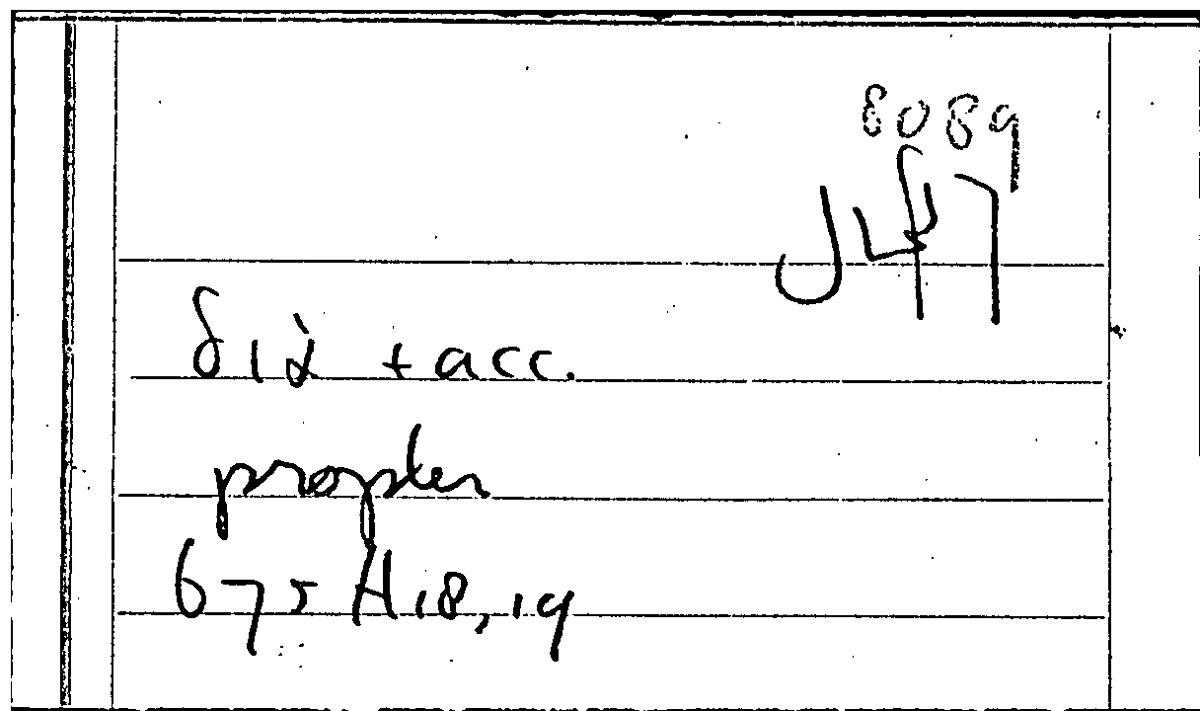 8089
J47
διὰ + acc.
propter
675 A18, 19